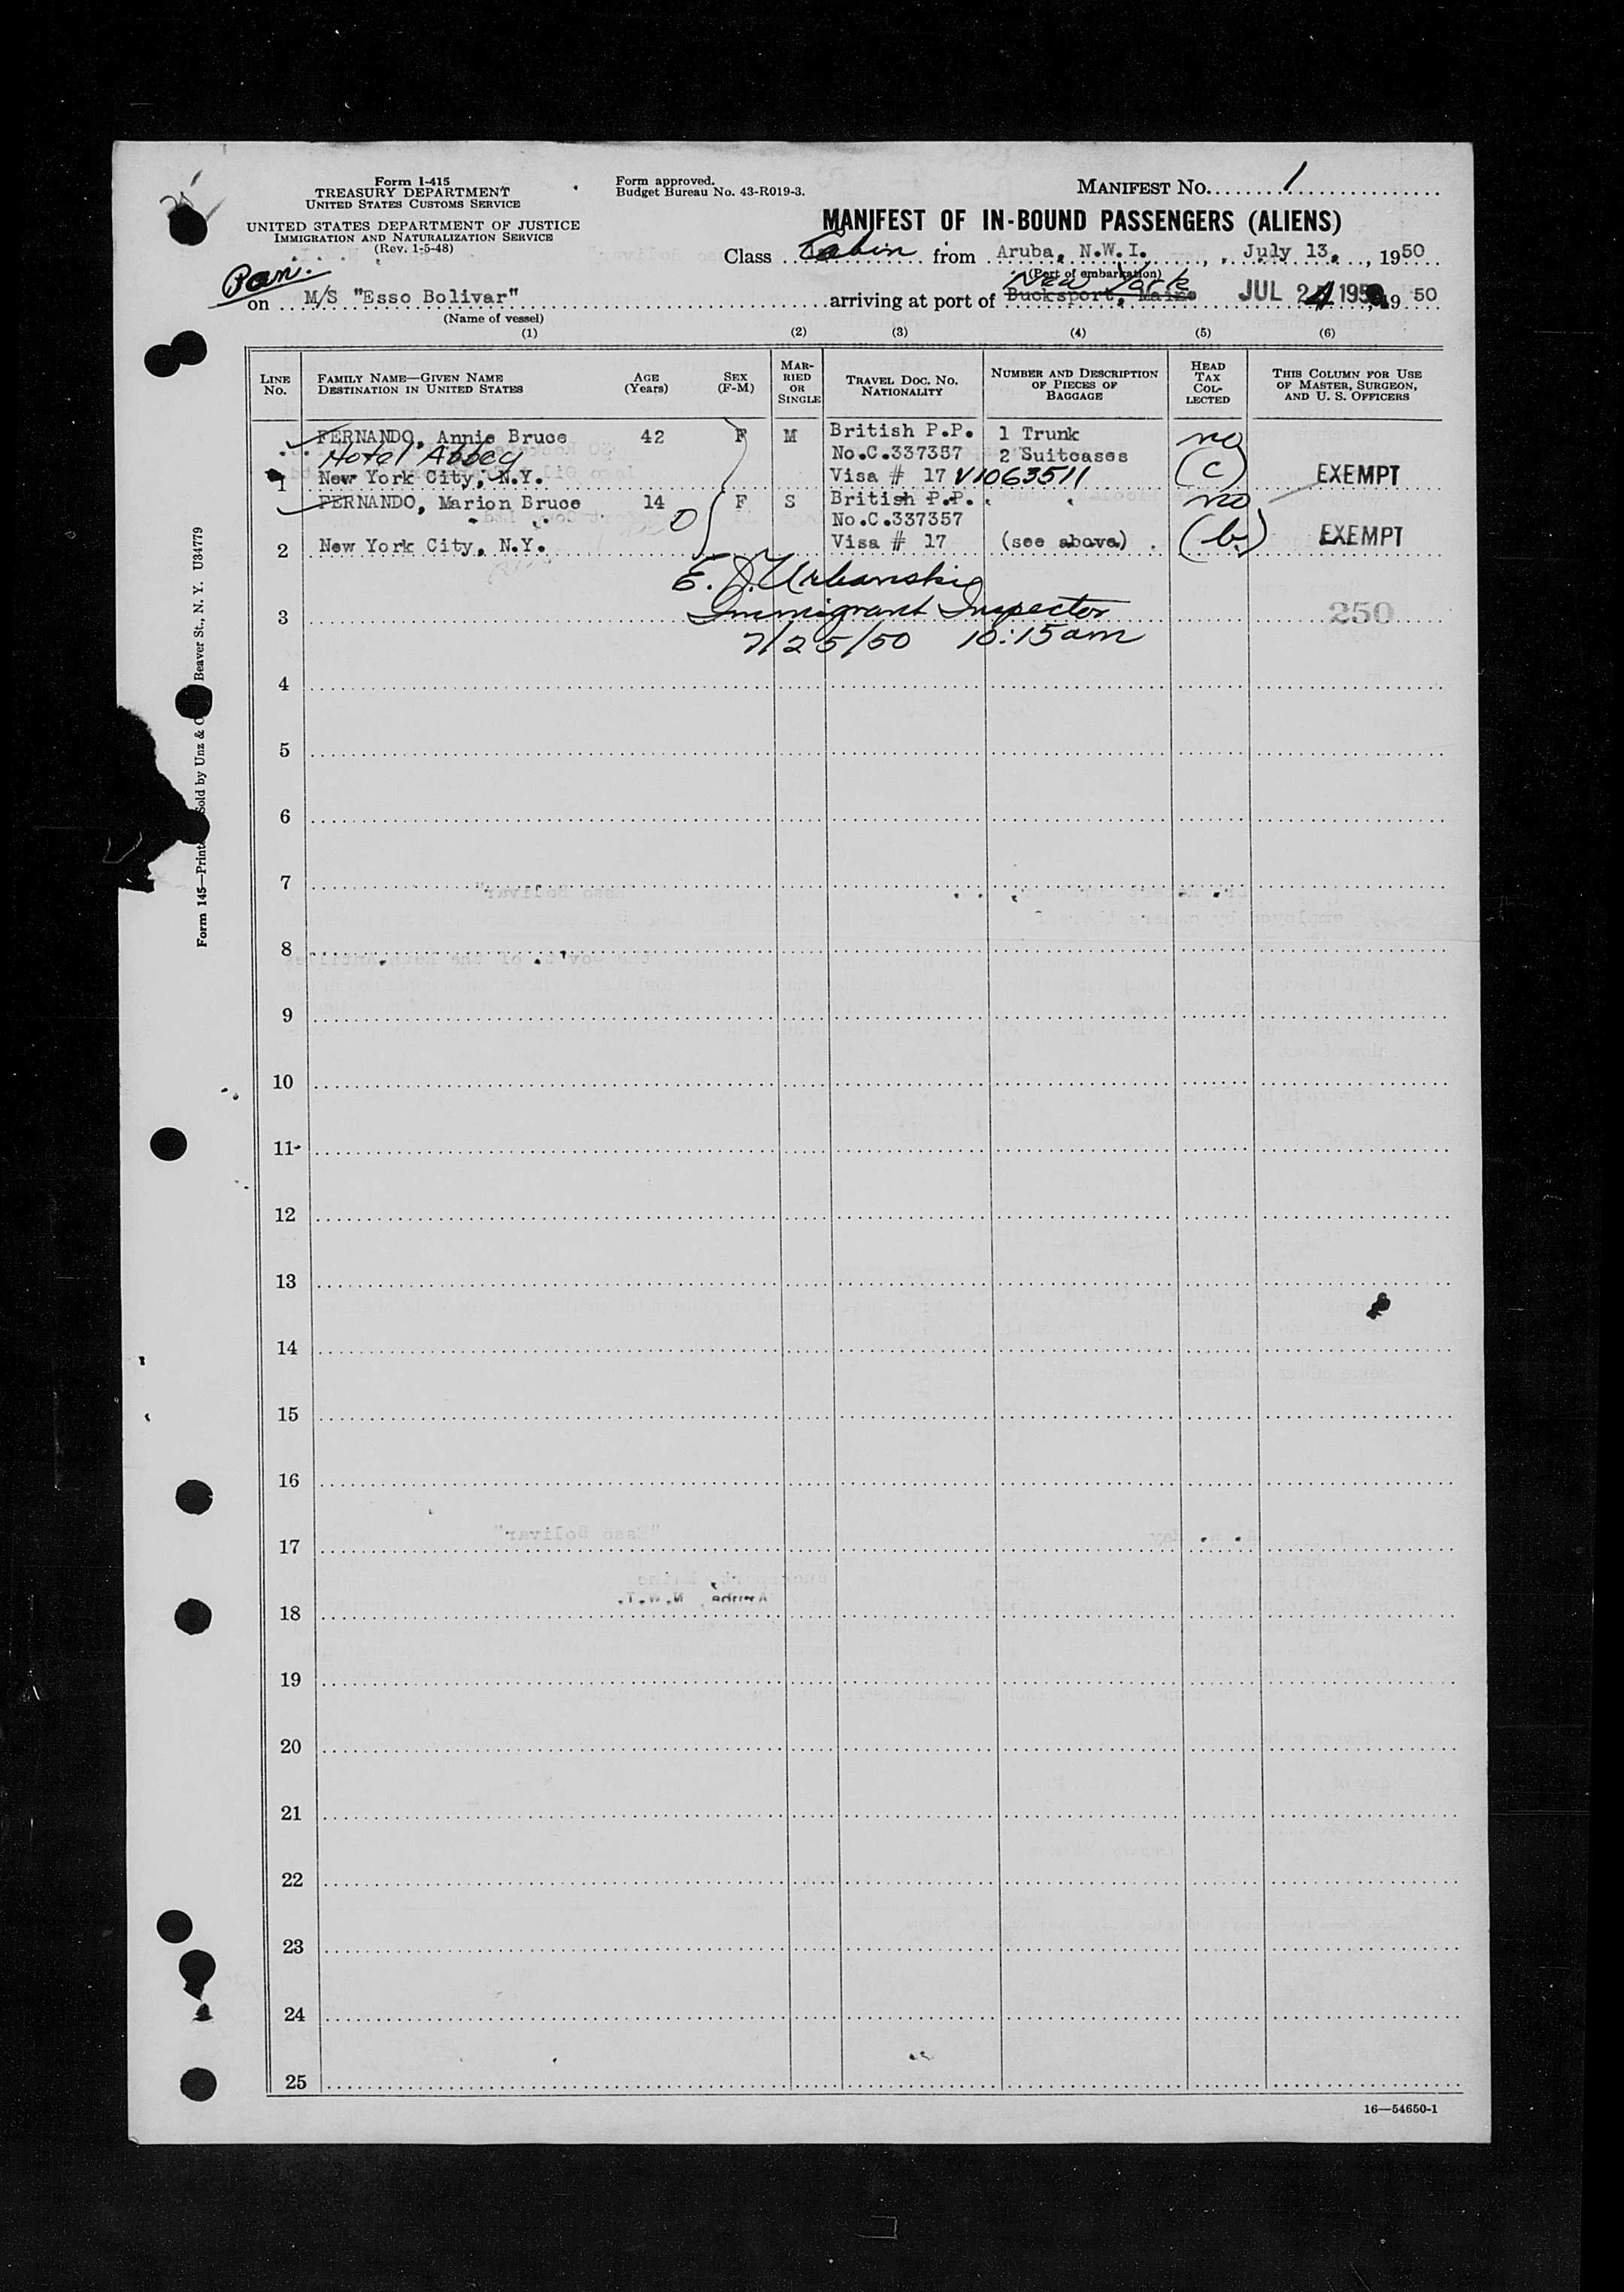 Form I-415
TREASURY DEPARTMENT
UNITED STATES CUSTOMS SERVICE
UNITED STATES DEPARTMENT OF JUSTICE
IMMIGRATION AND NATURALIZATION SERVICE
(Rev. 1-5-48)
Form approved.
Budget Bureau No. 43-R019-3.
MANIFEST NO. 1
MANIFEST OF IN-BOUND PASSENGERS (ALIENS)
Class Cabin from Aruba, N.W.I., July 13, 1950
(Port of embarkation)
Pan.
New York
on M/S "Esso Bolivar" arriving at port of Bucksport, Maine JUL 24 1950, 19 50
(Name of vessel)
(1) (2) (3) (4) (5) (6)
LINE NO. FAMILY NAME—GIVEN NAME DESTINATION IN UNITED STATES AGE (Years) SEX (F-M) MARRIED OR SINGLE TRAVEL DOC. NO. NATIONALITY NUMBER AND DESCRIPTION OF PIECES OF BAGGAGE HEAD TAX COLLECTED THIS COLUMN FOR USE OF MASTER, SURGEON, AND U. S. OFFICERS
FERNANDO, Annie Bruce 42 F M British P.P. 1 Trunk no
Hotel Abbey No.C.337357 2 Suitcases
1 New York City, N.Y. Visa # 17 V1063511 (c) EXEMPT
FERNANDO, Marion Bruce 14 F S British P.P. no
0 No.C.337357
2 New York City, N.Y. Visa # 17 (see above) (b) EXEMPT
E. J. Urbanski
3 Immigrant Inspector 250
7/25/50 10:15am
4
5
6
7
8
9
10
11
12
13
14
15
16
17
18
19
20
21
22
23
24
25
16—54650-1
Form 145—Printed Sold by Unz & Co Beaver St., N. Y. U84779